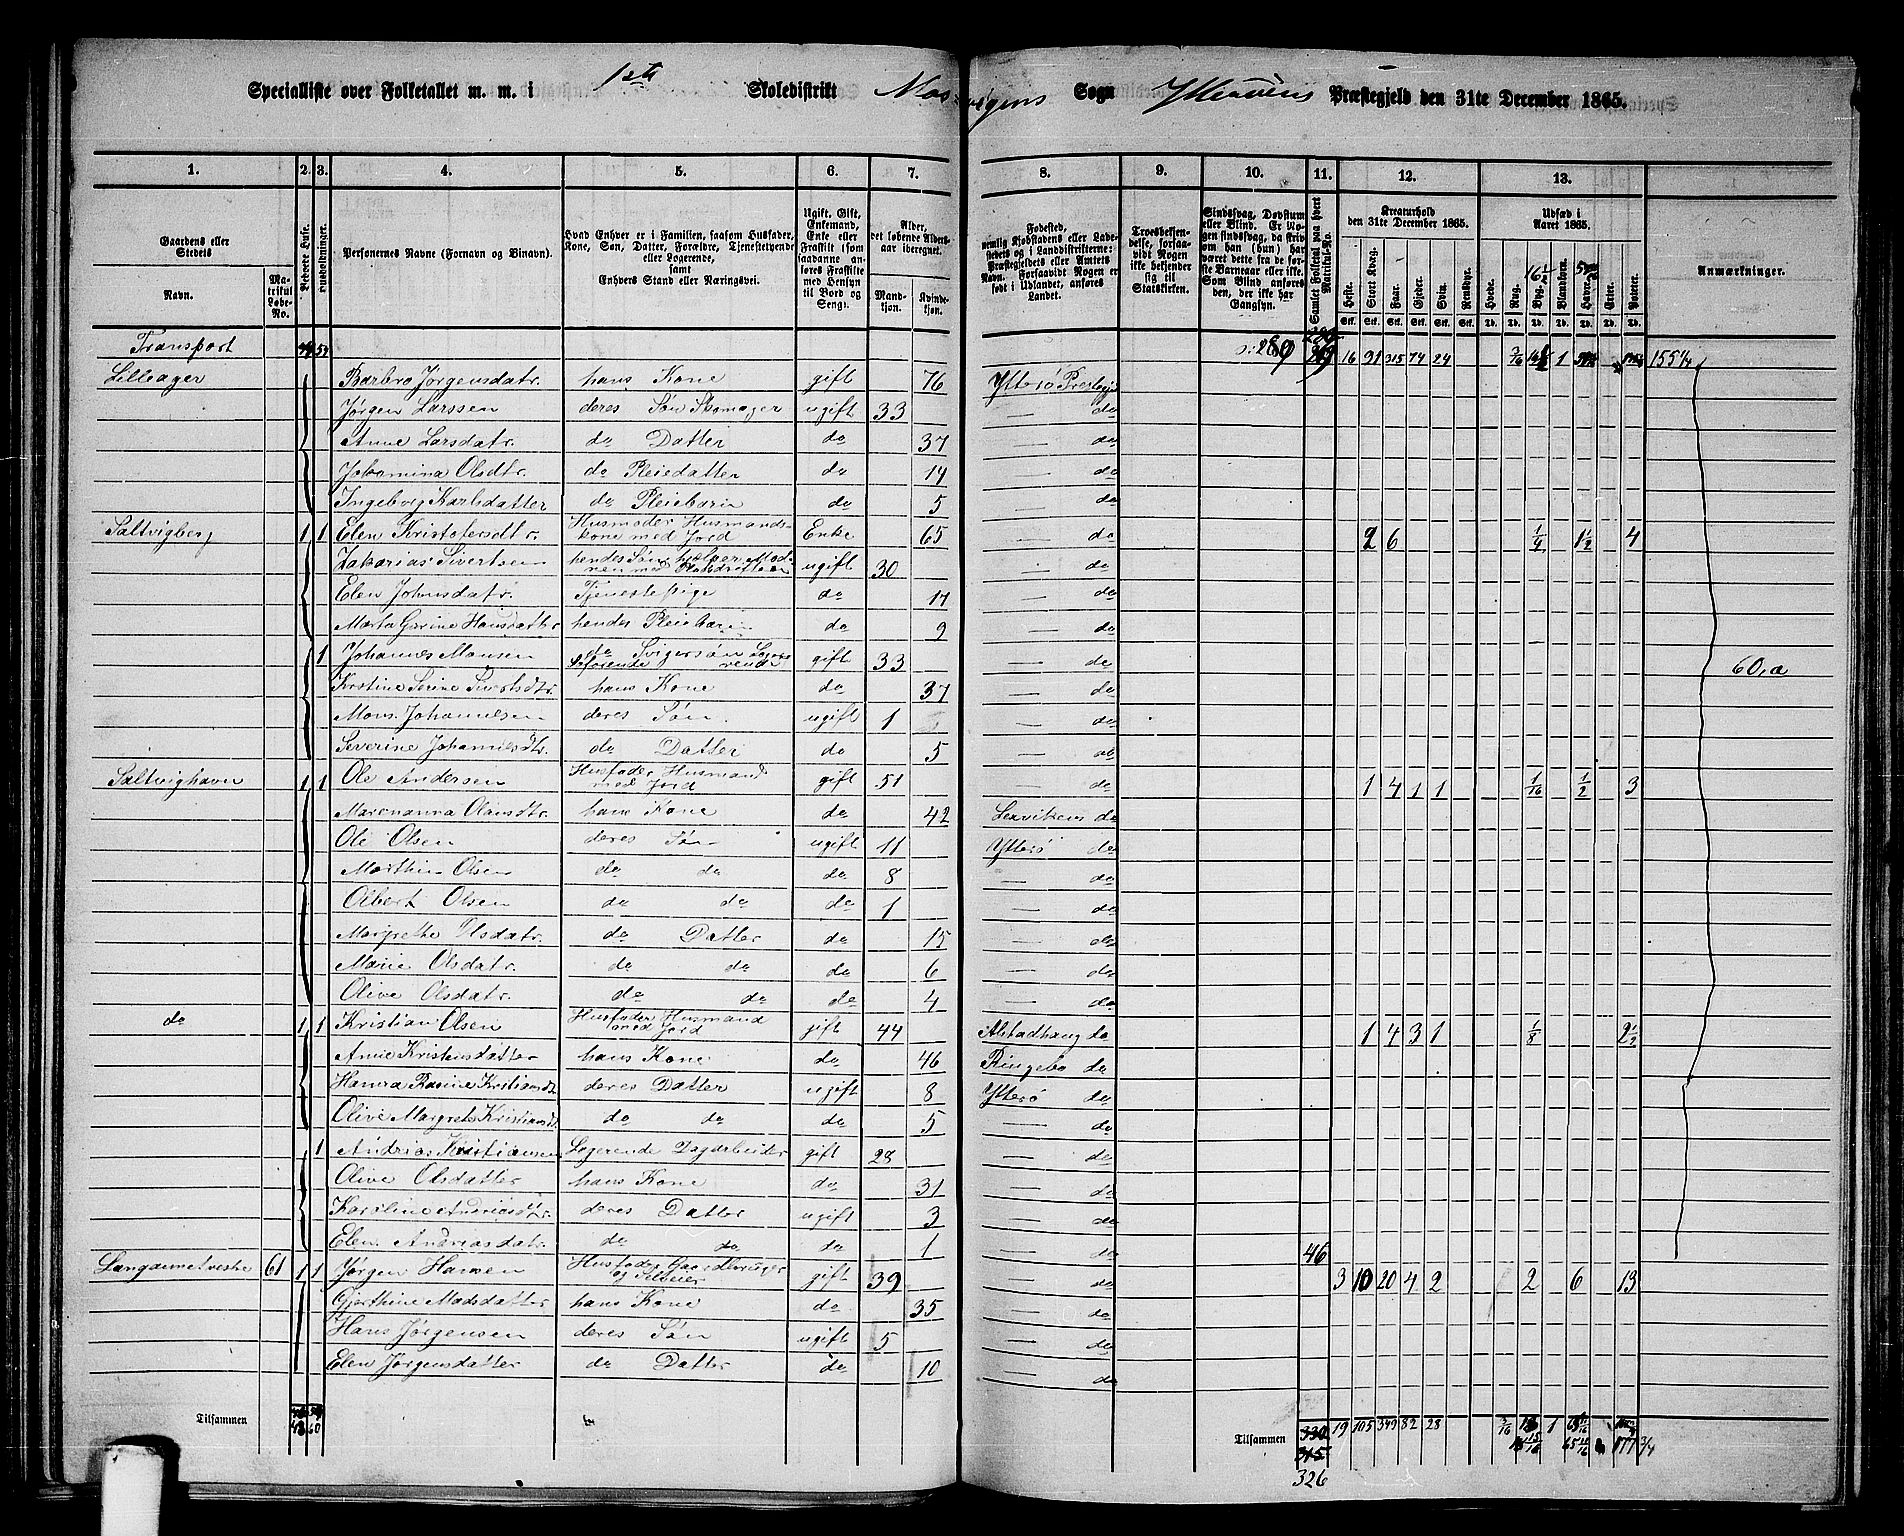 Specialliste over Folketallet m. m. i 1ste Skoledistrikt Mosvigens Sogn Ytterøens Præstegjeld den 31te December 1865.
1. 2. 3. 4. 5. 6. 7. 8. 9. 10. 11. 12. 13.
Gaardens eller Stedets
Navn. Matrikul Løbe-No.
Beboede Huse.
Husholdninger.
Personernes Navne (Fornavn og Binavn).
Hvad Enhver er i Familien, saasom Husfader, Kone, Søn, Datter, Forældre, Tjenestetyende eller Logerende, samt Enhvers Stand eller Næringsvei.
Ugift, Gift, Enkemand, Enke eller Fraskilt
Alder, det løbende Aldersaar iberegnet.
Mandkjøn. Kvindekjøn.
Fødested,
Troesbekjendelse, forsaavidt Nogen ikke bekjender sig til Statskirken.
Samlet Folketal paa hvert Matrikul-No.
Kreaturhold den 31te December 1865.
Udsæd i Aaret 1865.
Anmærkninger.
Heste. Stort Kvæg. Faar. Gjeder. Sviin. Rensdyr. Hvede. Rug. Byg. Blandkorn. Havre. Erter. Poteter.
Transport 16 91 315 74 24 3/16 1
Lilleager Barbro Jørgensdatr. hans Kone gift 76 Ytterø Prestgj
Jørgen Larssen deres Søn Skomager ugift 33 do
Anne Larsdatr. do Datter do 37 do
Johannna Olsdtr. do Pleiedatter do 14 do
Ingeborg Karlsdatter do Pleiebarn do 5 do
Saltvigberg 1 1 Elen Kristofersdtr. Husmoder Husmandskone med Jord Enke 65 do 2 6 1/4 1 1/2 4
Zakarias Sivertsen hendes Søn hjelper Moderen med ugift 30 do
Elen Johnsdatr. Tjenestepige do 17 do
Marta Gurine Hansdatter hendes Pleiebarn do 9 do
1 Johannes Monsen do Svigersøn Logerende gift 33 do 60,a
Kristine Serine Sivertsdtr. hans Kone do 37 do
Mons Johannesen deres Søn ugift 1 do
Severine Johannesdtr. do Datter do 5 do
Saltvighavn 1 1 Ole Andersen Husfader Husmand med Jord gift 51 do 1 4 1 1 1/16 1/2 3
Marenanna Olausdtr. hans Kone do 42 Lexvikens do
Ole Olsen deres Søn ugift 11 Ytterø do
Marthin Olsen do do do 8 do
Albert Olsen do do do 1 do
Margrethe Olsdatr. do Datter do 15 do
Marie Olsdatr. do do do 6 do
Olive Olsdatr. do do do 4 do
do 1 1 Kristian Olsen Husfader Husmand med Jord gift 44 Alstadhaug do 1 4 3 1 1/8 2 1/2
Anne Kristensdatter hans Kone do 46 Ringebo do
Hanna Rasine Kristiansdt deres Datter ugift 8 Ytterø do
Olive Margrete Kristiansdt do do do 5 do
1 Andrias Kristiansen Logerende Dagarbeider gift 28 do
Olive Olsdatter hans Kone do 31 do
Karoline Andriasdtr. deres Datter ugift 3 do
Elen Andriasdatr. do do do 1 do 46
Langaunetvestre 61 1 1 Jørgen Hansen Husfader Gaardbruger og Selveier gift 39 do 3 10 20 4 2 2 6 13
Gjertine Madsdatter hans Kone do 35 do
Hans Jørgensen deres Søn ugift 5 do
Elen Jørgensdatter do Datter do 10 do
Tilsammen 48 60 Tilsammen 330 19 105 349 82 28 3/16 1
315 177 3/4
326